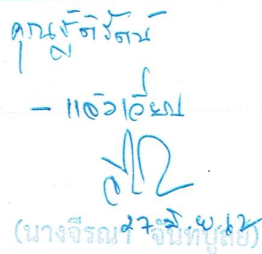 คุณรัติรัตน์
- แจ้งเวียน
27 มิ.ย. 67
(นางจีรณา จันทบูลย์)